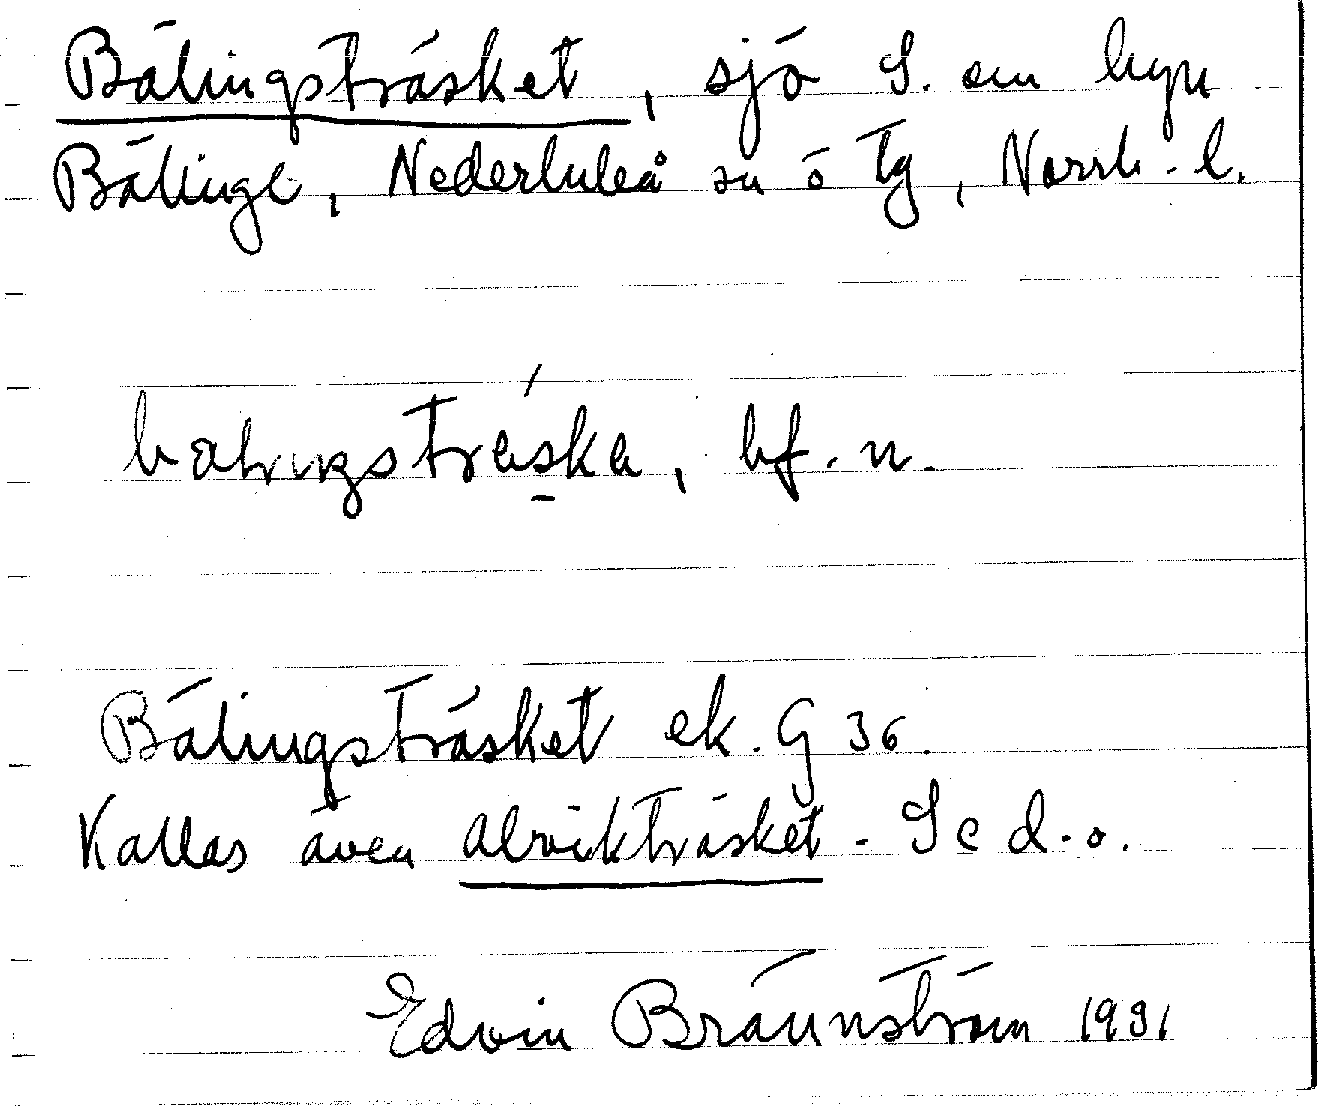 Bälingsträsket, sjö S. om byn
Bälinge, Nederluleå sn ö tg, Norrb. l.
balıŋsträ́ska, bf. n.
Bälingsträsket ek. G 36.
Kallas även Alvikträsket. Se d. o.
Edvin Brännström 1931